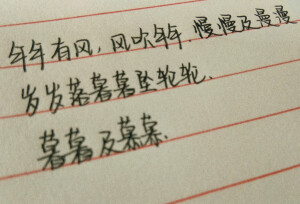 年年有风，风吹年年，慢慢及漫漫
岁岁落暮暮坠轮轮.
暮暮及慕慕.